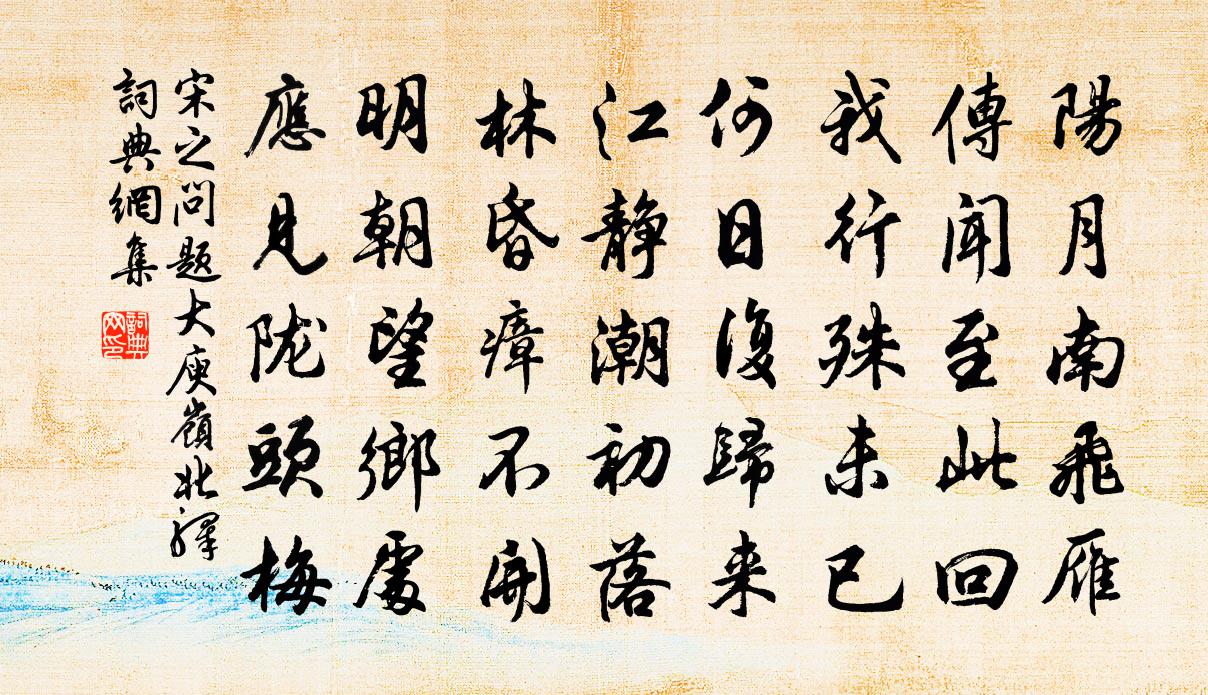 陽月南飛雁
傳聞至此回
我行殊未已
何日復歸来
江静潮初落
林昏瘴不開
明朝望鄉處
應見陇頭梅
宋之问题大庾嶺北驛
詞典網集
詞典網印